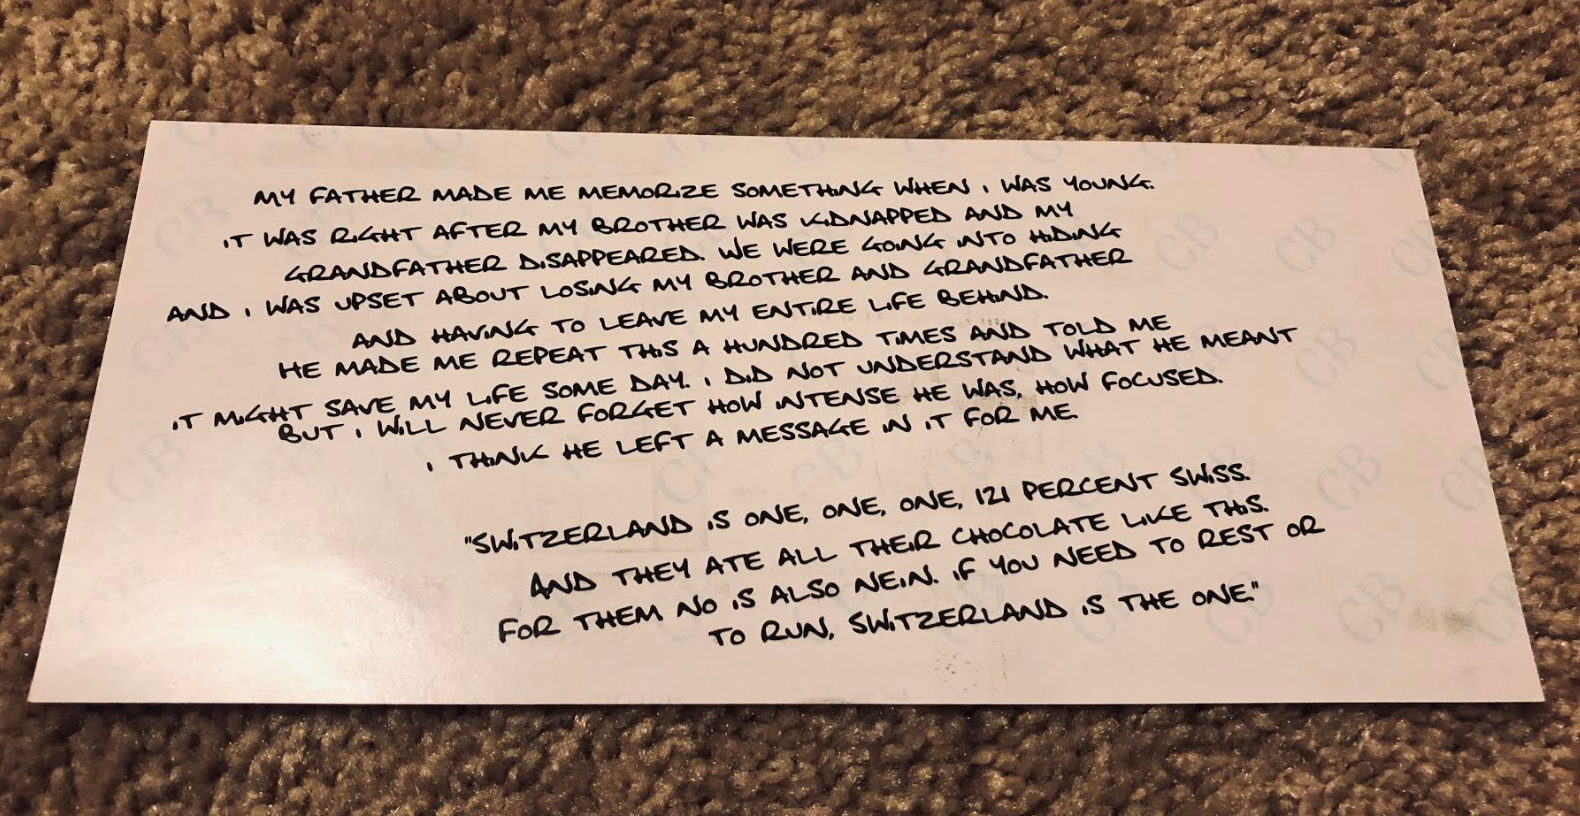 MY FATHER MADE ME MEMORIZE SOMETHING WHEN I WAS YOUNG.
IT WAS RIGHT AFTER MY BROTHER WAS KIDNAPPED AND MY
GRANDFATHER DISAPPEARED. WE WERE GOING INTO HIDING
AND I WAS UPSET ABOUT LOSING MY BROTHER AND GRANDFATHER
AND HAVING TO LEAVE MY ENTIRE LIFE BEHIND.
HE MADE ME REPEAT THIS A HUNDRED TIMES AND TOLD ME
IT MIGHT SAVE MY LIFE SOME DAY. I DID NOT UNDERSTAND WHAT HE MEANT
BUT I WILL NEVER FORGET HOW INTENSE HE WAS, HOW FOCUSED.
I THINK HE LEFT A MESSAGE IN IT FOR ME.
"SWITZERLAND IS ONE, ONE, ONE, 121 PERCENT SWISS.
AND THEY ATE ALL THEIR CHOCOLATE LIKE THIS.
FOR THEM NO IS ALSO NEIN. IF YOU NEED TO REST OR
TO RUN, SWITZERLAND IS THE ONE."